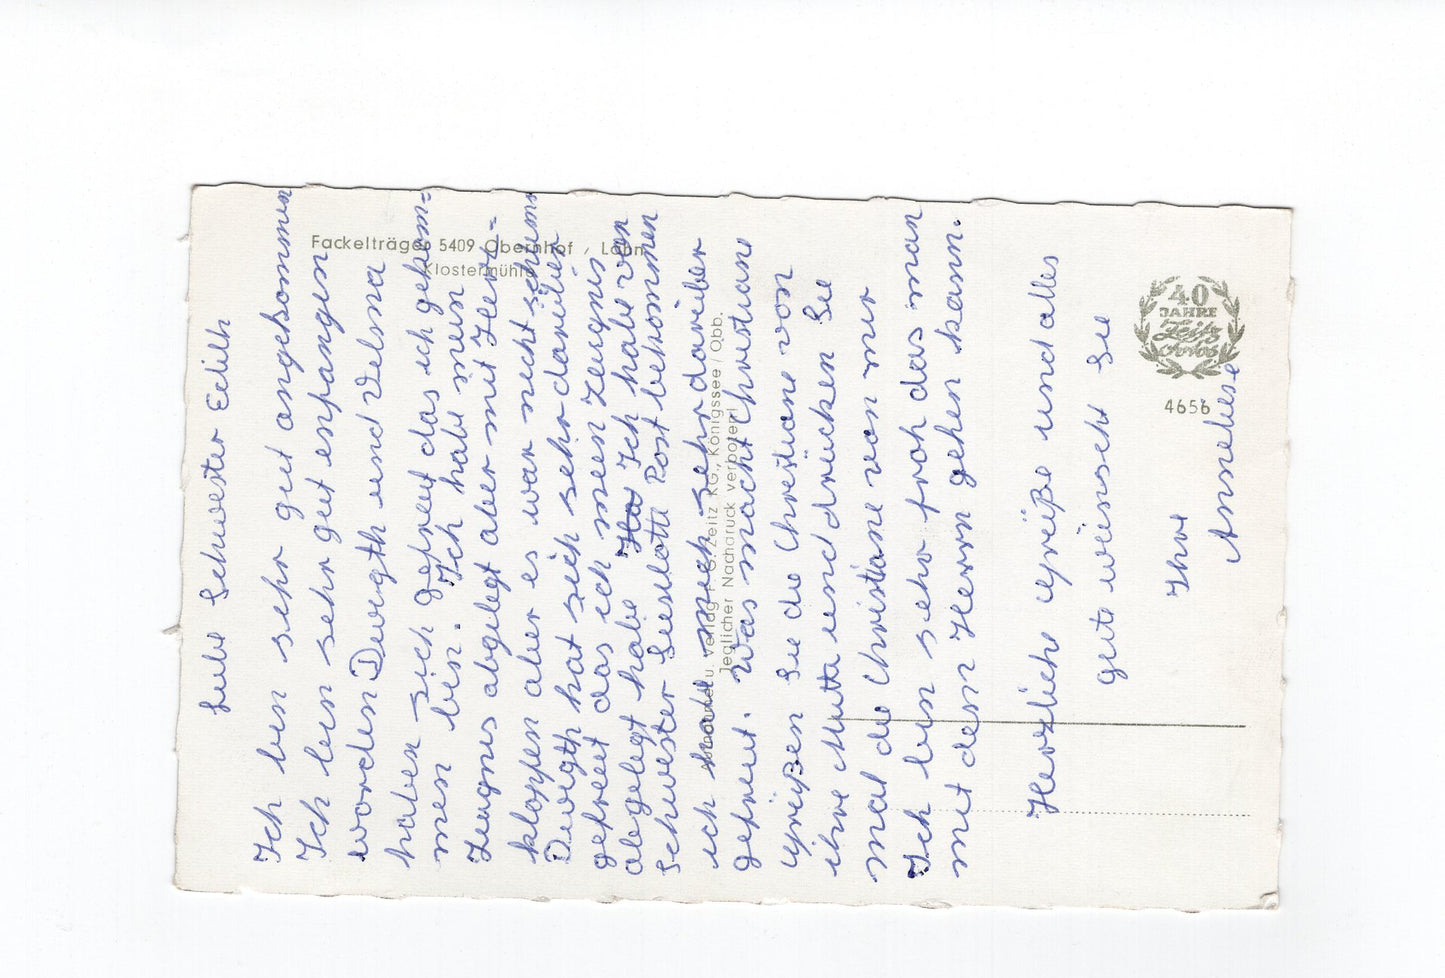 Fackelträger 5409 Obernhof / Lahn
Klostermühle
Verlag F. G. Zeitz KG., Königssee / Obb.
Jeglicher Nachdruck verboten!
40
JAHRE
Zeitz
Fotos
4656
Liebe Schwester Edith
Ich bin sehr gut angekommen
Ich bin sehr gut enpfangen
worden Dwigth und Velma
haben sich gefreut das ich gekom=
men bin. Ich habe mein
Zeugnis abgelegt aber mit Herz=
kloppen aber es war nicht schlimm
Dwigth hat sich sehr darüber
gefreut das ich meen Zeugnis
abgelegt habe Ha Ich habe von
Schwester Lieselotte Post bekommen
ich habe mich sehr darüber
gefreut. Was macht Christiane
grüßen Sie die Christiane von
ihre Mutti und drücken Sie
mal die Christiane von mir
Ich bin sehr froh das man
mit dem Herrn gehen kann.
Herzliche grüße und alles
gute wünscht Sie
Ihre
Anneliese